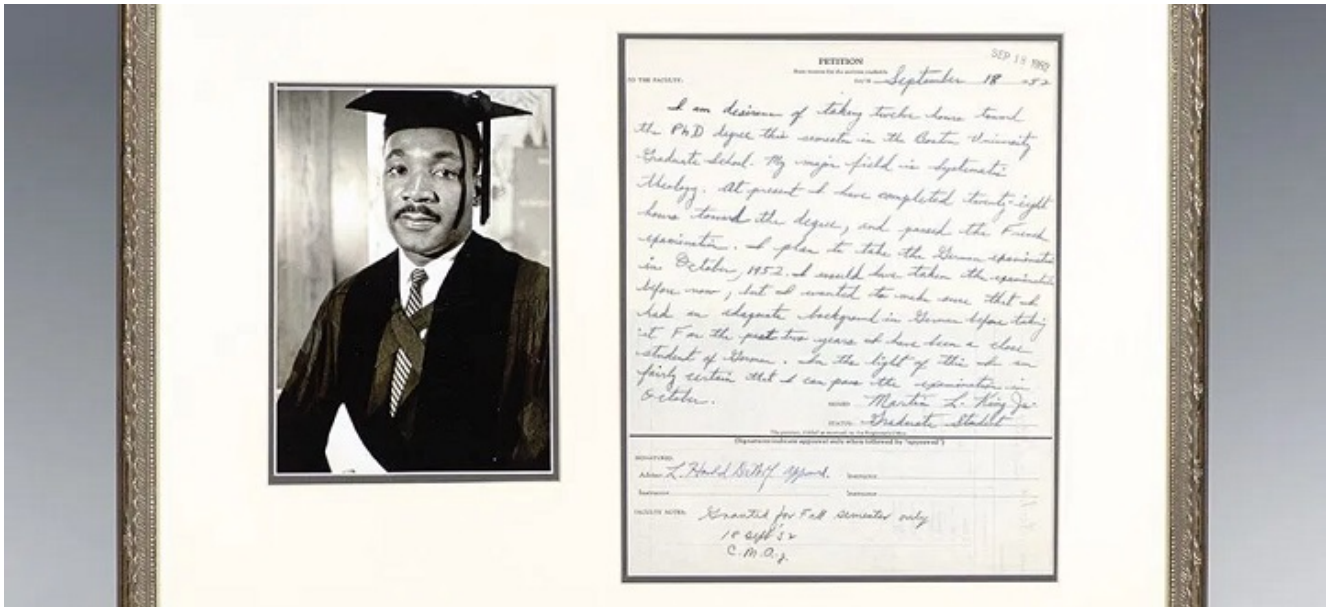 SEP 18 1952
PETITION
TO THE FACULTY:
DATE September 18 1952
I am desirous of taking twelve hours toward
the PhD degree this semester in the Boston University
Graduate School. My major field is Systematic
theology. At present I have completed twenty-eight
hours toward the degree, and passed the French
examination. I plan to take the German examination
in October, 1952. I would have taken the examination
before now, but I wanted to make sure that I
had an adequate background in German before taking
it. For the past two years I have been a close
student of German. In the light of this I am
fairly certain that I can pass the examination in
October.
SIGNED Martin L. King Jr.
STATUS Graduate Student
(Signatures indicate approval only when followed by "approved")
SIGNATURES:
Adviser L. Harold DeWolf approved. Instructor
Instructor Instructor
FACULTY NOTES: Granted for Fall semester only
18 Sept 52
C.M.O.